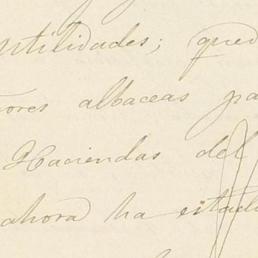 utilidades; qued
ores albaceas pa
Haciendas del
ahora ha estad